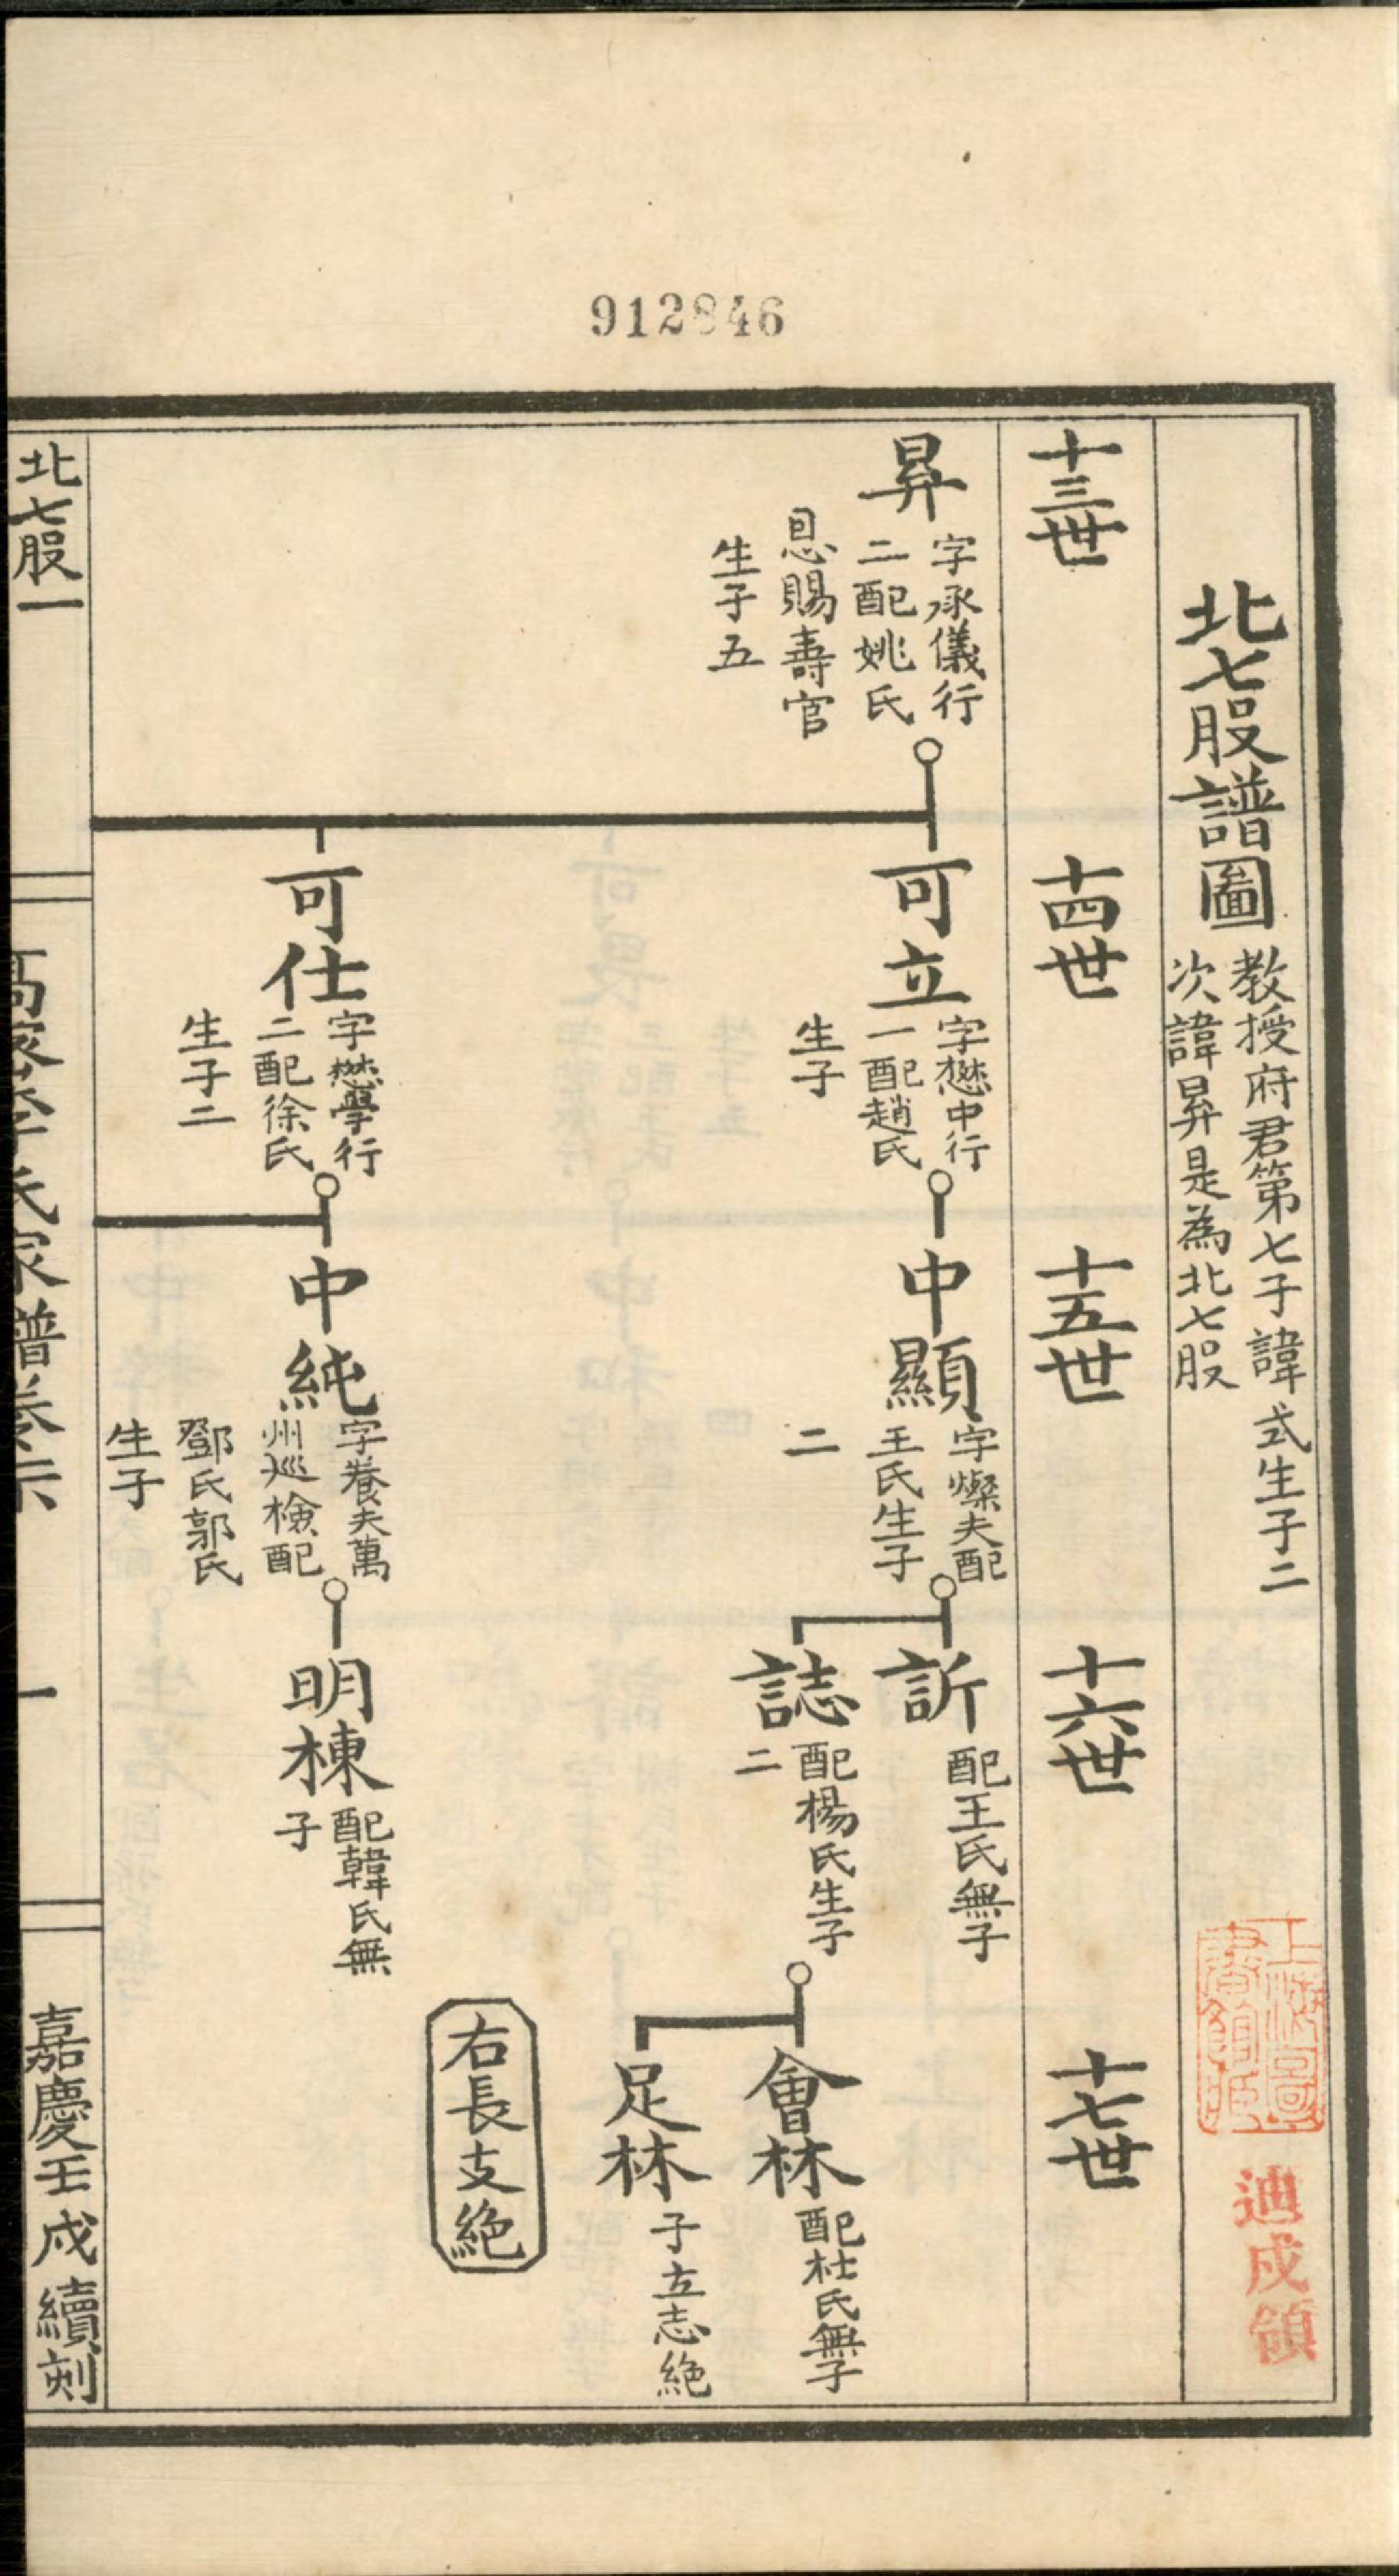 912846
北七股譜圖
教授府君第七子諱式生子二
次諱昇是為北七股
十三世
十四世
十五世
十六世
十七世
昇
字承儀行
二配姚氏
恩賜壽官
生子五
可立
字懋中行
一配趙氏
生子
中顯
字燦夫配
王氏生子
二
訢
配王氏無子
誌
配楊氏生子
二
會林
配杜氏無子
足林
子立志絶
右長支絶
可仕
字懋學行
二配徐氏
生子二
中純
字養夫萬
州巡檢配
鄧氏郭氏
生子
明棟
配韓氏無
子
北七股一
氏家譜卷六
一
嘉慶壬戌續刻
上海圖
書館藏
迪戌領